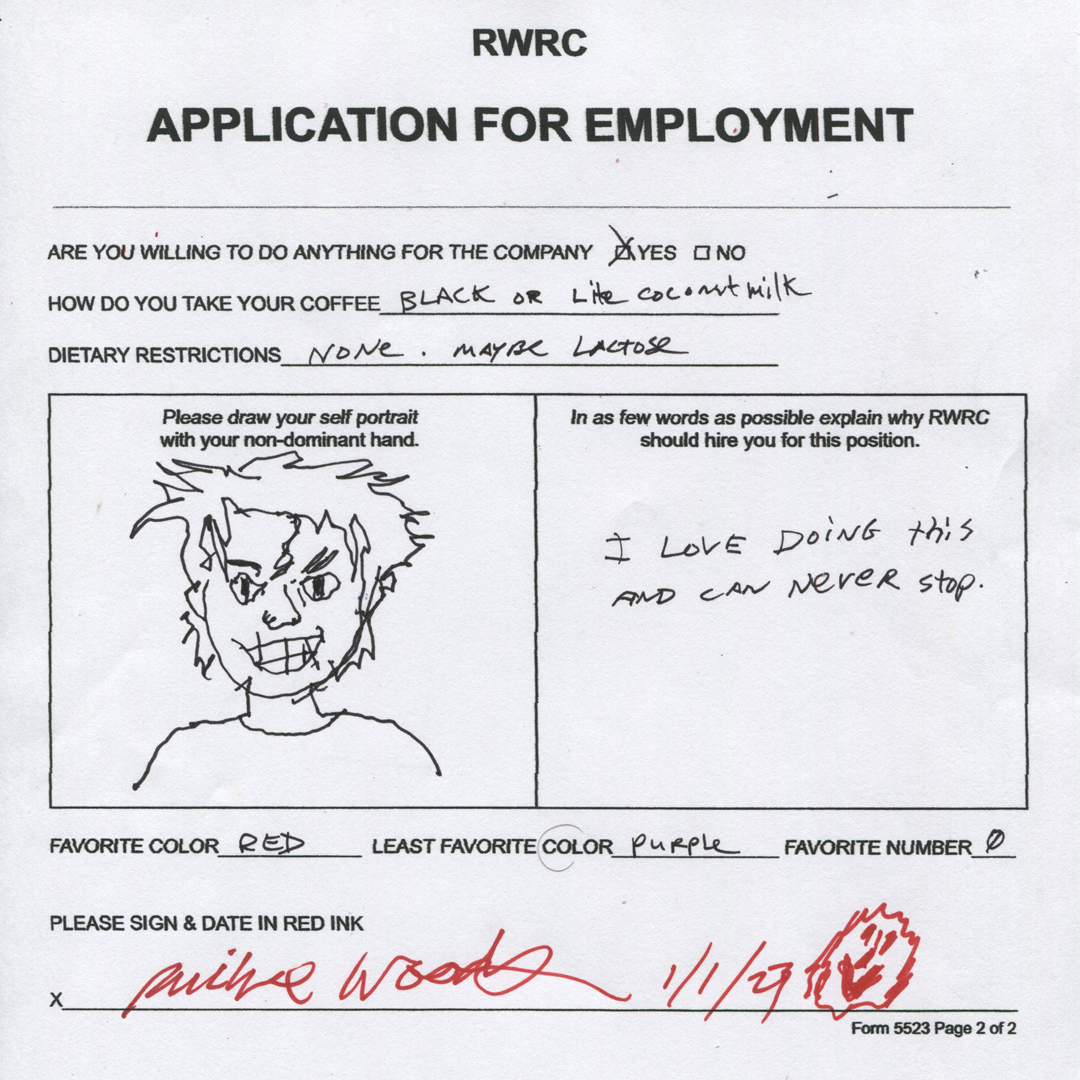 RWRC
APPLICATION FOR EMPLOYMENT
ARE YOU WILLING TO DO ANYTHING FOR THE COMPANY YES NO
HOW DO YOU TAKE YOUR COFFEE BLACK OR Lite coconut milk
DIETARY RESTRICTIONS NONe. MAYBE LACTOSE
Please draw your self portrait
with your non-dominant hand.
In as few words as possible explain why RWRC
should hire you for this position.
I LOVE DOING this
AND CAN NEVER stop.
FAVORITE COLOR RED LEAST FAVORITE COLOR PURPLE FAVORITE NUMBER 0
PLEASE SIGN & DATE IN RED INK
X Woods 1/1/27
Form 5523 Page 2 of 2